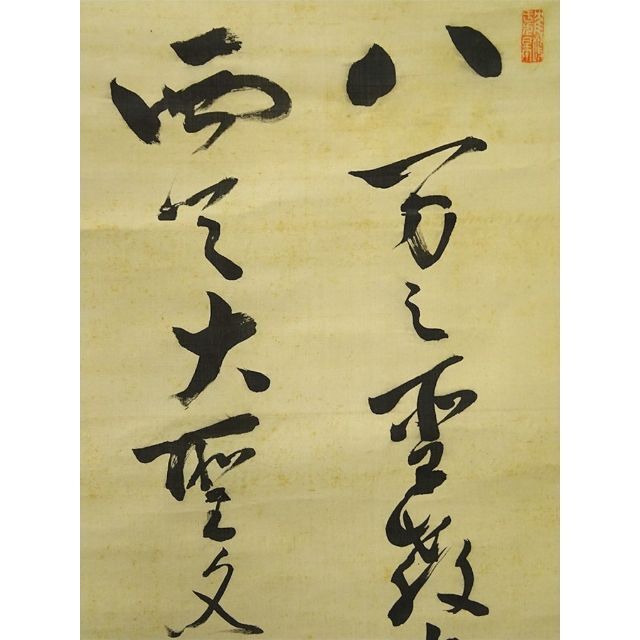 八万之聖教
是大聖文